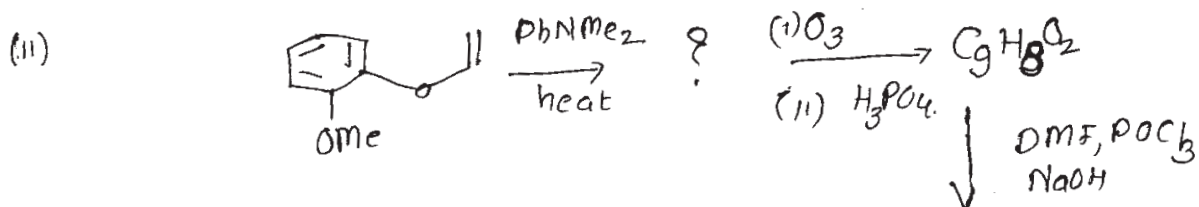 (ii)
O
OMe
PhNMe2
heat
?
(1) O3
(11) H3PO4.
C9H8O2
DMF, POCl3
NaOH